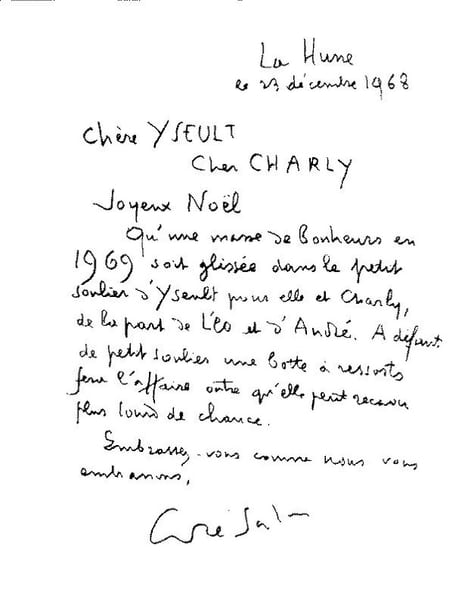 La Hune
le 23 décembre 1968
Chère YSEULT
Cher CHARLY
Joyeux Noël
Qu'une masse de Bonheurs en
1969 soit glissée dans le petit
soulier d'Yseult pour elle et Charly,
de la part de Léo et d'André. A défaut
de petit soulier une botte à ressorts
fera l'affaire outre qu'elle peut recevoir
plus lourd de chance.
Embrassez-vous comme nous vous
embrassons,